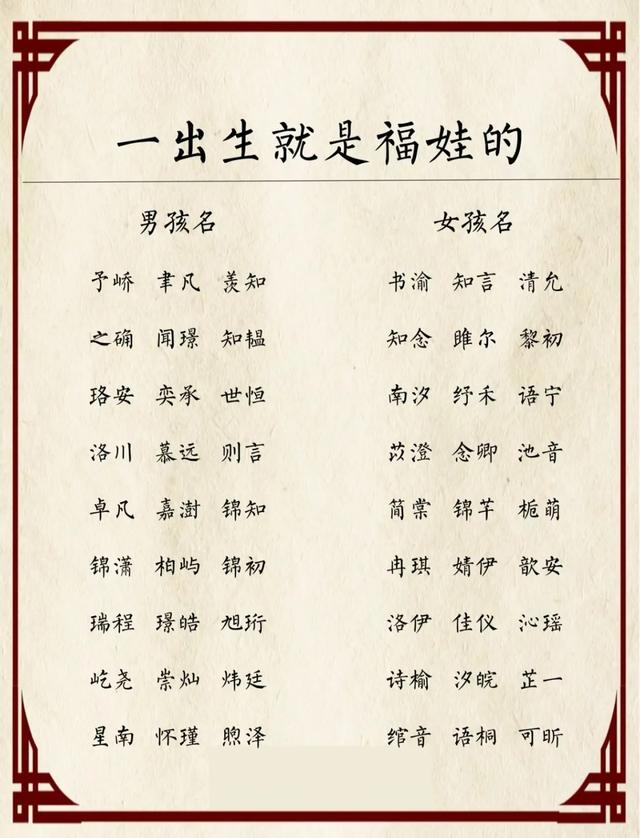 一出生就是福娃的
男孩名 女孩名
予峤 聿凡 羡知 书渝 知言 清允
之确 闻璟 知韫 知念 雎尔 黎初
珞安 奕承 世恒 南汐 纾禾 语宁
洛川 慕远 则言 苡澄 念卿 池音
卓凡 嘉澍 锦知 简棠 锦芊 栀萌
锦潇 柏屿 锦初 冉琪 婧伊 歆安
瑞程 璟皓 旭珩 洛伊 佳仪 沁瑶
屹尧 崇灿 炜廷 诗榆 汐皖 芷一
星南 怀瑾 煦泽 绾音 语桐 可昕